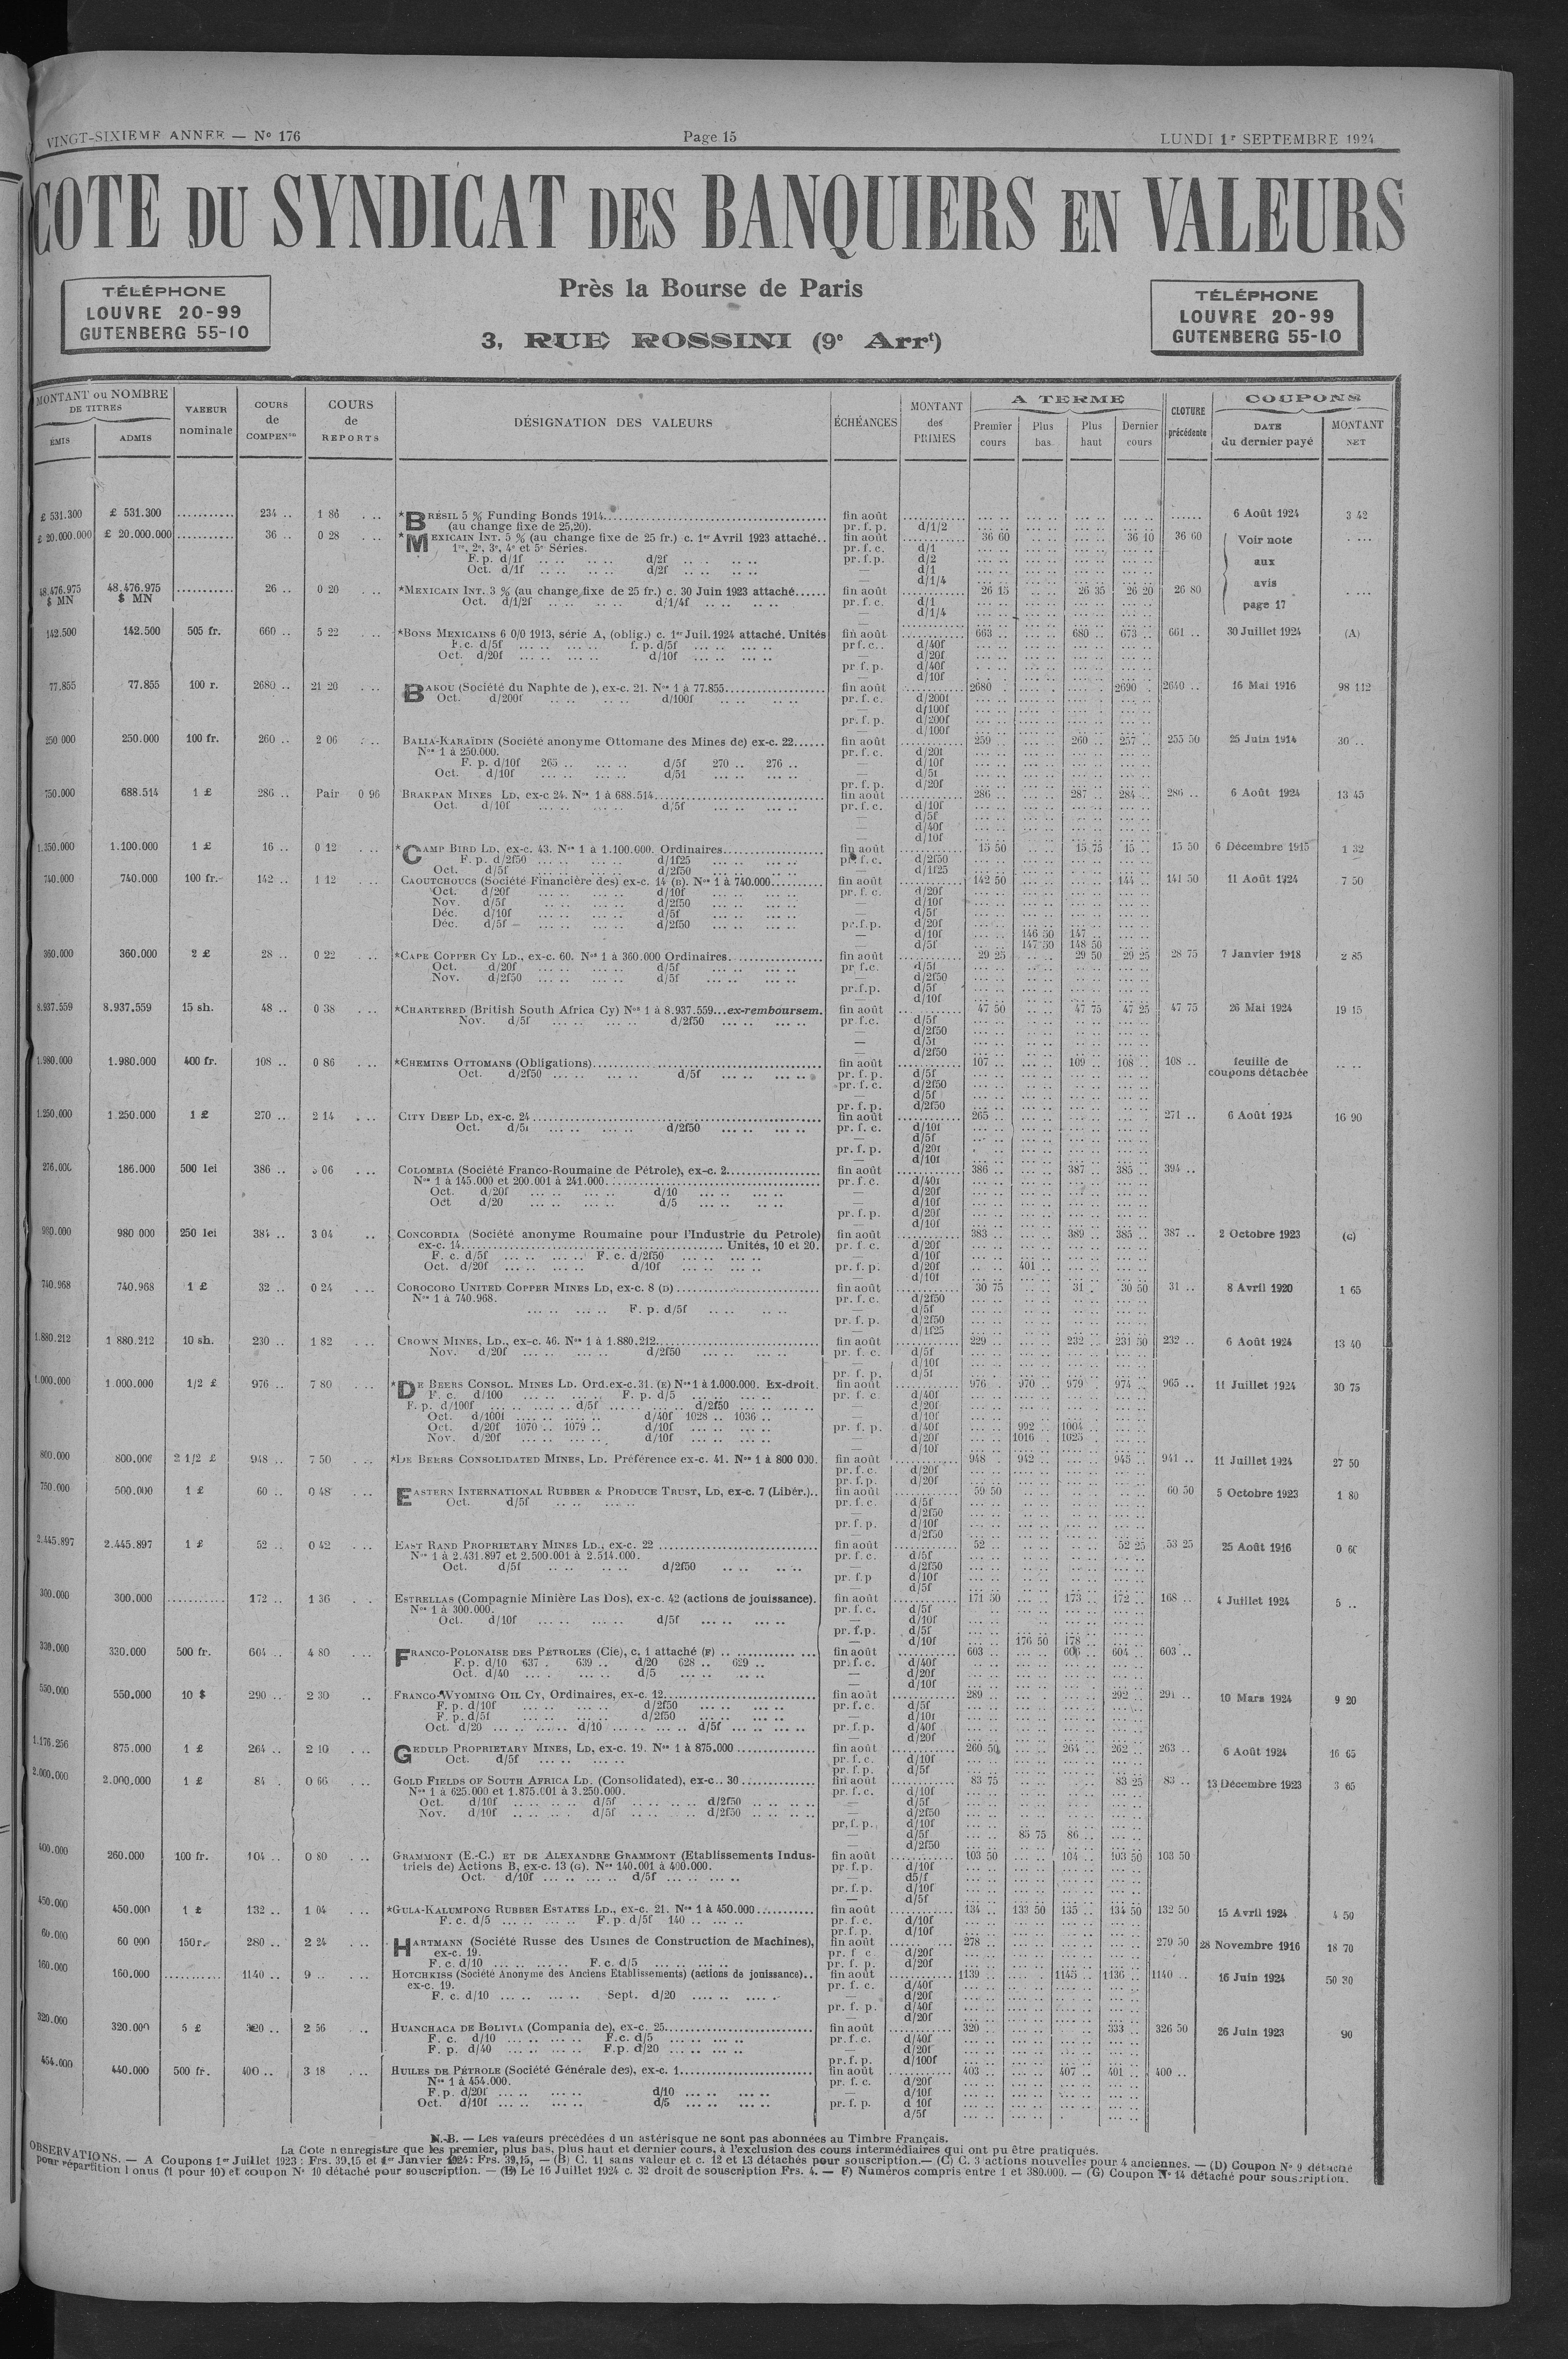 VINGT-SIXIEME ANNEE — N° 176
Page 15
LUNDI 1er SEPTEMBRE 1924
COTE DU SYNDICAT DES BANQUIERS EN VALEURS
TÉLÉPHONE
LOUVRE 20-99
GUTENBERG 55-10
Près la Bourse de Paris
3, RUE ROSSINI (9e Arrt)
TÉLÉPHONE
LOUVRE 20-99
GUTENBERG 55-10
MONTANT ou NOMBRE DE TITRES
ÉMIS ADMIS
VALEUR nominale
COURS de COMPENon
COURS de REPORTS
DÉSIGNATION DES VALEURS
ÉCHÉANCES
MONTANT des PRIMES
A TERME
Premier cours Plus bas Plus haut Dernier cours
CLOTURE précédente
COUPONS
DATE du dernier payé MONTANT NET
£ 531.300 £ 531.300 234 .. 1 86 *BRÉSIL 5 % Funding Bonds 1914 fin août 6 Août 1924 3 42
(au change fixe de 25,20). pr. f. p. d/1/2
£ 20.000.000 £ 20.000.000 36 .. 0 28 *MEXICAIN INT. 5 % (au change fixe de 25 fr.) c. 1er Avril 1923 attaché.. fin août 36 60 36 10 36 60 Voir note
1re, 2e, 3e, 4e et 5e Séries. pr. f. c. d/1
F. p. d/1f d/2f pr. f. p. d/2 aux
Oct. d/1f d/2f — d/1
d/1/4 avis
48.476.975 $ MN 48.476.975 $ MN 26 .. 0 20 *MEXICAIN INT. 3 % (au change fixe de 25 fr.) c. 30 Juin 1923 attaché fin août 26 15 26 35 26 20 26 80
Oct. d/1/2f d/1/4f pr. f. c. d/1 page 17
— d/1/4
142.500 142.500 505 fr. 660 .. 5 22 *BONS MEXICAINS 6 0/0 1913, série A, (oblig.) c. 1er Juil. 1924 attaché. Unités fin août 663 .. 680 .. 673 .. 661 .. 30 Juillet 1924 (A)
F. c. d/5f f. p. d/5f pr f. c. d/40f
Oct. d/20f d/10f — d/20f
pr f. p. d/40f
— d/10f
77.855 77.855 100 r. 2680 .. 21 20 BAKOU (Société du Naphte de ), ex-c. 21. Nos 1 à 77.855 fin août 2680 2690 2640 .. 16 Mai 1916 98 112
Oct. d/200f d/100f pr. f. c. d/200f
— d/100f
pr. f. p. d/200f
— d/100f
250 000 250.000 100 fr. 260 .. 2 06 BALIA-KARAÏDIN (Société anonyme Ottomane des Mines de) ex-c. 22 fin août 259 260 .. 257 .. 255 50 25 Juin 1914 30 ..
Nos 1 à 250.000. pr. f. c. d/20f
F. p. d/10f 265 .. d/5f 270 .. 276 .. — d/10f
Oct. d/10f d/5f — d/5f
pr. f. p. d/20f
750.000 688.514 1 £ 286 .. Pair 0 96 BRAKPAN MINES LD, ex-c 24. Nos 1 à 688.514 fin août 286 .. 287 .. 284 .. 286 .. 6 Août 1924 13 45
Oct. d/10f d/5f pr. f. c. d/10f
— d/5f
— d/40f
— d/10f
1.350.000 1.100.000 1 £ 16 .. 0 12 *CAMP BIRD LD, ex-c. 43. Nos 1 à 1.100.000. Ordinaires fin août 15 50 15 75 15 .. 15 50 6 Décembre 1915 1 32
F. p. d/2f50 d/1f25 pr. f. c. d/2f50
Oct. d/5f d/2f50 — d/1f25
740.000 740.000 100 fr. 142 .. 1 12 CAOUTCHOUCS (Société Financière des) ex-c. 14 (B). Nos 1 à 740.000 fin août 142 50 144 .. 141 50 11 Août 1924 7 50
Oct. d/20f d/10f pr. f. c. d/20f
Nov. d/5f d/2f50 — d/10f
Déc. d/10f d/5f — d/5f
Déc. d/5f d/2f50 pr. f. p. d/20f
— d/10f 146 50 147 ..
— d/5f 147 50 148 50
360.000 360.000 2 £ 28 .. 0 22 *CAPE COPPER CY LD., ex-c. 60. Nos 1 à 360.000 Ordinaires fin août 29 25 29 50 29 25 28 75 7 Janvier 1918 2 85
Oct. d/20f d/5f pr. f. c. d/5f
Nov. d/2f50 d/5f — d/2f50
pr. f. p. d/5f
— d/10f
8.937.559 8.937.559 15 sh. 48 .. 0 38 *CHARTERED (British South Africa Cy) Nos 1 à 8.937.559...ex-remboursem. fin août 47 50 47 75 47 25 47 75 26 Mai 1924 19 15
Nov. d/5f d/2f50 pr. f. c. d/5f
— d/2f50
— d/5f
— d/2f50
1.980.000 1.980.000 400 fr. 108 .. 0 86 *CHEMINS OTTOMANS (Obligations) fin août 107 .. 109 .. 108 .. 108 .. feuille de
Oct. d/2f50 d/5f pr. f. p. d/5f coupons détachée
pr. f. c. d/2f50
— d/5f
pr. f. p. d/2f50
1.250.000 1.250.000 1 £ 270 .. 2 14 CITY DEEP LD, ex-c. 24 fin août 265 .. 271 .. 6 Août 1924 16 90
Oct. d/5f d/2f50 pr. f. c. d/10f
— d/5f
pr. f. p. d/20f
— d/10f
276.000 186.000 500 lei 386 .. 3 06 COLOMBIA (Société Franco-Roumaine de Pétrole), ex-c. 2 fin août 386 .. 387 .. 385 .. 394 ..
Nos 1 à 145.000 et 200.001 à 241.000. pr. f. c. d/40f
Oct. d/20f d/10 — d/20f
Oct d/20 d/5 — d/10f
pr. f. p. d/20f
— d/10f
980.000 980 000 250 lei 384 .. 3 04 CONCORDIA (Société anonyme Roumaine pour l'Industrie du Pétrole) fin août 383 .. 389 .. 385 .. 387 .. 2 Octobre 1923 (C)
ex-c. 14 Unités, 10 et 20. pr. f. c. d/20f
F. c. d/5f F. c. d/2f50 — d/10f
Oct. d/20f d/10f pr. f. p. d/20f 401 ..
— d/10f
740.968 740.968 1 £ 32 .. 0 24 COROCORO UNITED COPPER MINES LD, ex-c. 8 (D) fin août 30 75 31 . 30 50 31 .. 8 Avril 1920 1 65
Nos 1 à 740.968. pr. f. c. d/2f50
F. p. d/5f — d/5f
pr. f. p. d/2f50
— d/1f25
1.880.212 1 880.212 10 sh. 230 .. 1 82 CROWN MINES, LD., ex-c. 46. Nos 1 à 1.880.212 fin août 229 .. 232 .. 231 50 232 .. 6 Août 1924 13 40
Nov. d/20f d/2f50 pr. f. c. d/5f
— d/10f
pr. f. p. d/5f
1.000.000 1.000.000 1/2 £ 976 .. 7 80 *DE BEERS CONSOL. MINES LD. Ord. ex-c. 31. (E) Nos 1 à 1.000.000. Ex-droit. fin août 976 . 970 .. 979 .. 974 .. 965 .. 11 Juillet 1924 30 75
F. c. d/100 F. p. d/5 pr. f. c. d/40f
F. p. d/100f d/5f d/2f50 — d/20f
Oct. d/100f d/40f 1028 .. 1036 .. — d/10f
Oct. d/20f 1070 .. 1079 .. d/10f pr. f. p. d/40f 992 .. 1004 ..
Nov. d/20f d/10f — d/20f 1016 .. 1025 ..
— d/10f
800.000 800.000 2 1/2 £ 948 .. 7 50 *DE BEERS CONSOLIDATED MINES, LD. Préférence ex-c. 41. Nos 1 à 800 000. fin août 948 . 942 .. 945 .. 941 .. 11 Juillet 1924 27 50
pr. f. c. d/20f
pr. f. p. d/20f
750.000 500.000 1 £ 60 .. 0 48 EASTERN INTERNATIONAL RUBBER & PRODUCE TRUST, LD, ex-c. 7 (Libér.).. fin août 59 50 60 50 5 Octobre 1923 1 80
Oct. d/5f pr. f. c. d/5f
— d/2f50
pr. f. p. d/10f
— d/2f50
2.445.897 2.445.897 1 £ 52 .. 0 42 EAST RAND PROPRIETARY MINES LD., ex-c. 22 fin août 52 .. 52 25 53 25 25 Août 1916 0 60
Nos 1 à 2.431.897 et 2.500.001 à 2.514.000. pr. f. c. d/5f
Oct. d/5f d/2f50 — d/2f50
pr. f. p d/10f
— d/5f
300.000 300.000 172 .. 1 36 ESTRELLAS (Compagnie Minière Las Dos), ex-c. 42 (actions de jouissance). fin août 171 50 173 .. 172 .. 168 .. 4 Juillet 1924 5 ..
Nos 1 à 300.000. pr. f. c. d/5f
Oct. d/10f d/5f — d/10f
pr. f. p. d/5f
— d/10f 176 50 178 ..
330.000 330.000 500 fr. 604 .. 4 80 FRANCO-POLONAISE DES PÉTROLES (Cie), c. 1 attaché (F) fin août 603 .. 606 .. 604 .. 603 ..
F. p. d/10 637 . 639 .. d/20 628 .. 629 .. pr. f. c. d/40f
Oct. d/40 d/5 — d/20f
— d/10f
550.000 550.000 10 $ 290 .. 2 30 FRANCO-WYOMING OIL CY, Ordinaires, ex-c. 12 fin août 289 .. 292 .. 291 .. 10 Mars 1924 9 20
F. p. d/10f d/2f50 pr. f. c. d/5f
F. p. d/5f d/2f50 — d/10f
Oct. d/20 d/10 d/5f pr. f. p. d/40f
— d/20f
1.176.256 875.000 1 £ 264 .. 2 10 GEDULD PROPRIETARY MINES, LD, ex-c. 19. Nos 1 à 875.000 fin août 260 50 264 .. 262 .. 263 .. 6 Août 1924 16 65
Oct. d/5f pr. f. c. d/10f
pr. f. p. d/5f
2.000.000 2.000.000 1 £ 84 . 0 66 GOLD FIELDS OF SOUTH AFRICA LD. (Consolidated), ex-c.. 30 fin août 83 75 83 25 83 .. 13 Décembre 1923 3 65
Nos 1 à 625.000 et 1.875.001 à 3.250.000. pr. f. c. d/10f
Oct. d/10f d/5f d/2f50 — d/5f
Nov. d/10f d/5f d/2f50 — d/2f50
pr. f. p. d/10f
— d/5f 85 75 86 ..
— d/2f50
400.000 260.000 100 fr. 104 .. 0 80 GRAMMONT (E.-C.) ET DE ALEXANDRE GRAMMONT (Etablissements Indus- fin août 103 50 104 .. 103 50 103 50
triels de) Actions B, ex-c. 13 (G). Nos 140.001 à 400.000. pr. f. p. d/10f
Oct. d/10f d/5f — d5/f
pr. f. p. d/10f
— d/5f
450.000 450.000 1 £ 132 .. 1 04 *GULA-KALUMPONG RUBBER ESTATES LD., ex-c. 21. Nos 1 à 450.000 fin août 134 .. 133 50 135 .. 134 50 132 50 15 Avril 1924 4 50
F. c. d/5 F. p. d/5f 140 .. pr. f. c. d/10f
pr. f. p. d/10f
60.000 60 000 150 r. 280 .. 2 24 HARTMANN (Société Russe des Usines de Construction de Machines), fin août 278 .. 279 50 28 Novembre 1916 18 70
ex-c. 19. pr. f c d/20f
F. c. d/10 F. c. d/5 pr. f. p. d/20f
160.000 160.000 1140 .. 9 .. HOTCHKISS (Société Anonyme des Anciens Etablissements) (actions de jouissance).. fin août 1139 .. 1145 .. 1136 .. 1140 .. 16 Juin 1924 50 30
ex-c. 19. pr. f. c. d/40f
F. c. d/10 Sept. d/20 — d/20f
pr. f. p. d/40f
— d/20f
320.000 320.000 5 £ 320 .. 2 56 HUANCHACA DE BOLIVIA (Compania de), ex-c. 25 fin août 320 .. 333 .. 326 50 26 Juin 1923 90
F. c. d/10 F. c. d/5 pr. f. c. d/40f
F. p. d/40 F. p. d/20 — d/20f
pr. f. p. d/100f
454.000 440.000 500 fr. 400 .. 3 18 HUILES DE PÉTROLE (Société Générale des), ex-c. 1 fin août 403 .. 407 .. 401 .. 400 ..
Nos 1 à 454.000. pr. f. c. d/20f
F. p. d/20f d/10 — d/10f
Oct. d/10f d/5 pr. f. p. d 10f
d/5f
N.-B. — Les valeurs précédées d un astérisque ne sont pas abonnées au Timbre Français.
La Cote n enregistre que les premier, plus bas, plus haut et dernier cours, à l'exclusion des cours intermédiaires qui ont pu être pratiqués.
OBSERVATIONS. — A Coupons 1er Juillet 1923 : Frs. 39,15 et 1er Janvier 1924 : Frs. 39,15, — (B) C. 11 sans valeur et c. 12 et 13 détachés pour souscription.— (C) C. 3 actions nouvelles pour 4 anciennes. — (D) Coupon No 9 détaché
pour répartition bonus (1 pour 10) et coupon No 10 détaché pour souscription. — (E) Le 16 Juillet 1924 c. 32 droit de souscription Frs. 4. — F) Numéros compris entre 1 et 380.000. — (G) Coupon No 14 détaché pour souscription.